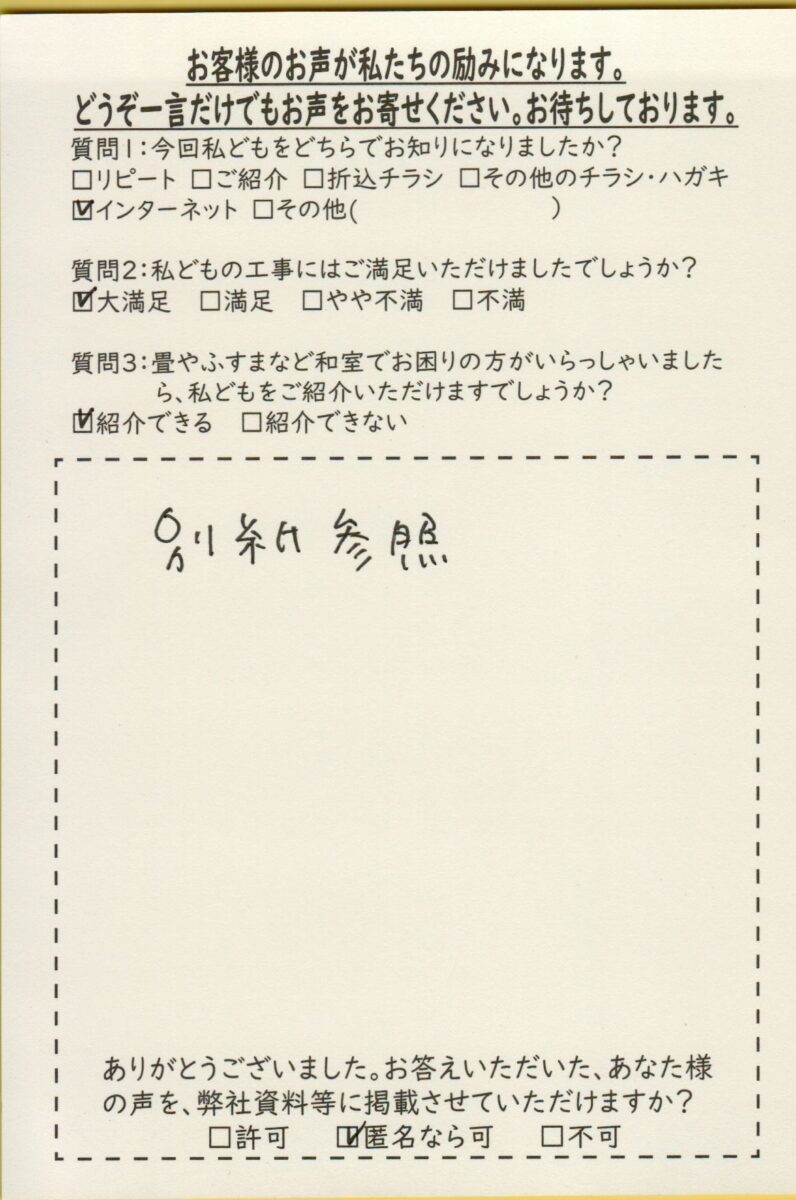 お客様のお声が私たちの励みになります。
どうぞ一言だけでもお声をお寄せください。お待ちしております。
質問1:今回私どもをどちらでお知りになりましたか?
□リピート □ご紹介 □折込チラシ □その他のチラシ・ハガキ
☑インターネット □その他( )
質問2:私どもの工事にはご満足いただけましたでしょうか?
☑大満足 □満足 □やや不満 □不満
質問3:畳やふすまなど和室でお困りの方がいらっしゃいました
ら、私どもをご紹介いただけますでしょうか?
☑紹介できる □紹介できない
別紙参照
ありがとうございました。お答えいただいた、あなた様
の声を、弊社資料等に掲載させていただけますか?
□許可 ☑匿名なら可 □不可